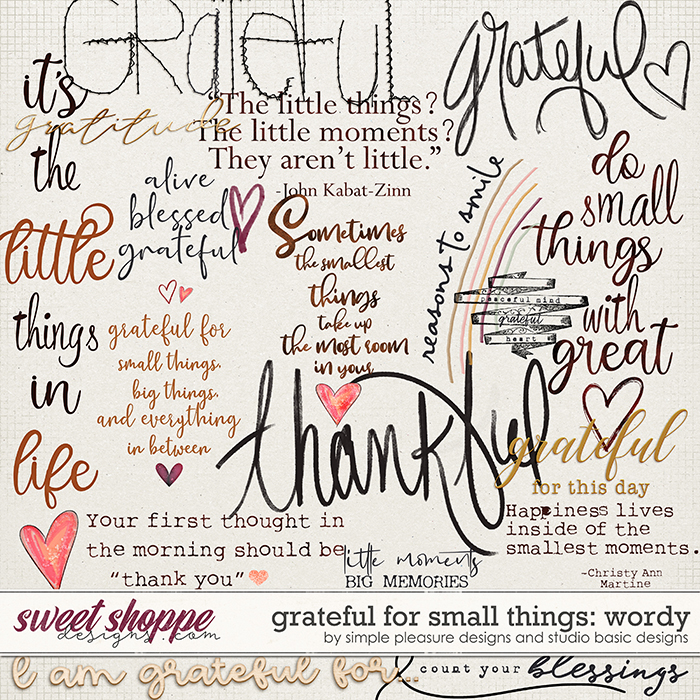 Grateful
grateful
it's
the
little
things
in
life
gratitude
"The little things?
The little moments?
They aren't little."
-John Kabat-Zinn
alive
blessed
grateful
Sometimes
the smallest
things
take up
the most room
in your
reasons to smile
peaceful mind
grateful
heart
do
small
things
with
great
grateful for
small things,
big things,
and everything
in between
thankful
grateful
for this day
Happiness lives
inside of the
smallest moments.
-Christy Ann
Martine
Your first thought in
the morning should be
"thank you"
little moments
BIG MEMORIES
sweet shoppe
designs.com
grateful for small things: wordy
by simple pleasure designs and studio basic designs
I am grateful for...
count your blessings